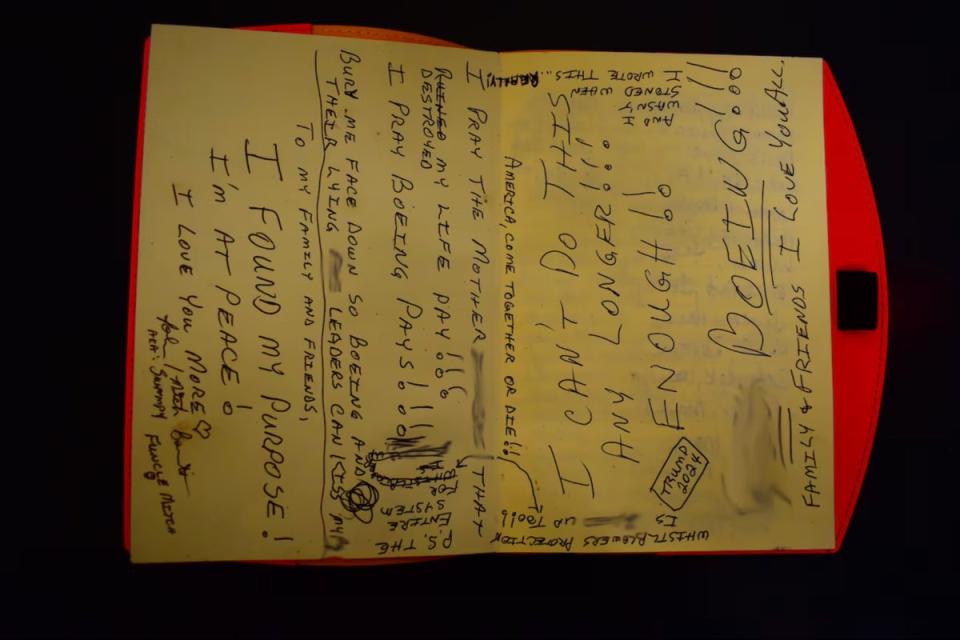 I CAN'T DO THIS
ANY LONGER!!!
ENOUGH!!
BOEING!!!
FAMILY & FRIENDS I LOVE YOU ALL.
TRUMP
2024
I WROTE THIS... REALLY!
STONED WHEN
WASN'T
AND I
AMERICA, COME TOGETHER OR DIE!!
I PRAY THE MOTHER THAT
RUINED MY LIFE PAY!!!
DESTROYED
I PRAY BOEING PAYS!!!
BURY ME FACE DOWN SO BOEING AND
THEIR LYING LEADERS CAN KISS MY
TO MY FAMILY AND FRIENDS,
I FOUND MY PURPOSE!
I'M AT PEACE!
I LOVE YOU MORE ♡
AKA: SWAMPY FUNCLE MITCH
P.S. THE
ENTIRE
SYSTEM
FOR
WHISTLBLOWERS PROTECTION
IS UP TOO!!